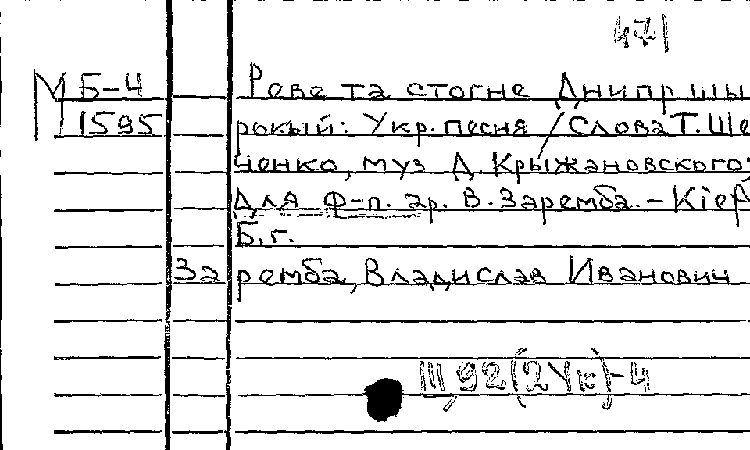 471
М Б-4 Реве та стогне Днипр шы
1595 рокый: Укр. песня / Слова Т. Ше
ченко, муз Д. Крыжановского;
Для ф-п. ар. В. Заремба. - Киев
Б.г.
Заремба, Владислав Иванович
III,92(2Ук)-4